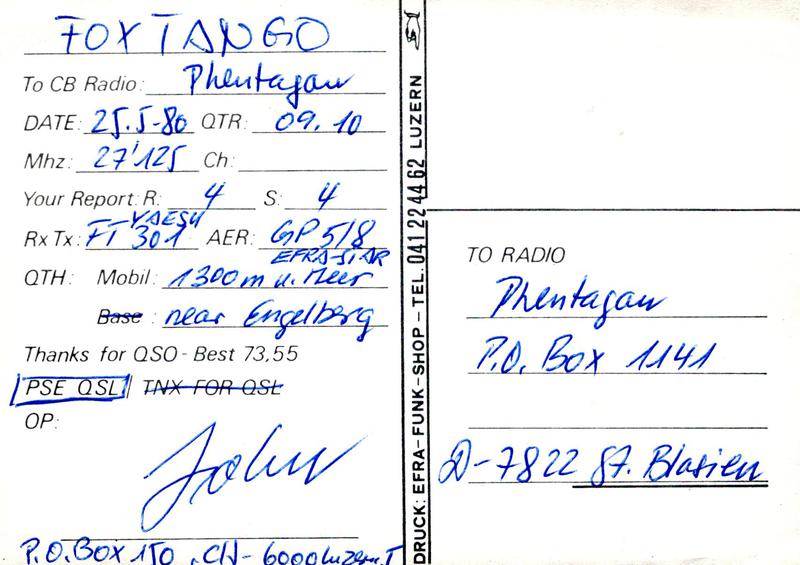 FOX TANGO
To CB Radio: Phentagau
DATE: 25.5-80 QTR: 09.10
Mhz: 27'125 Ch:
Your Report: R: 4 S: 4
YAESU
Rx Tx: FT 301 AER: GP 5/8
EFRA-STAR
QTH: Mobil: 1300m ü. Meer
Base : near Engelberg
Thanks for QSO - Best 73,55
PSE QSL TNX FOR QSL
OP:
John
P.O.BOX 150, CH-6000 Luzern
DRUCK: EFRA-FUNK-SHOP-TEL. 041 22 44 62 LUZERN
TO RADIO
Phentagau
P.O. Box 1141
D-7822 St. Blasien